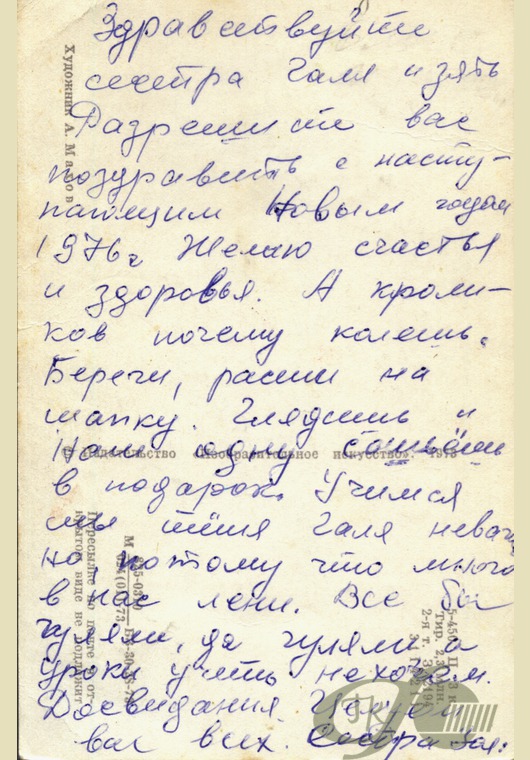 Здравствуйте
сестра Галя и зять
Разрешите вас
поздравить с насту-
пающим Новым годом
1976г Желаю счастья
и здоровья. А кроли-
ков почему колешь.
Береги, расти на
шапку. Глядишь и
Нам одну сошьёшь
в подарок. Учимся
мы тётя Галя неваж
но, потому что много
в нас лени. Все бы
гуляли, да гуляли а
уроки учить нехочем.
Досвидания. Целуем
вас всех. Сестра Зоя:
Художник А.
Издательство «Изобразительное искусство». 1975
Пересылке по почте в от-
крытом виде не подлежит